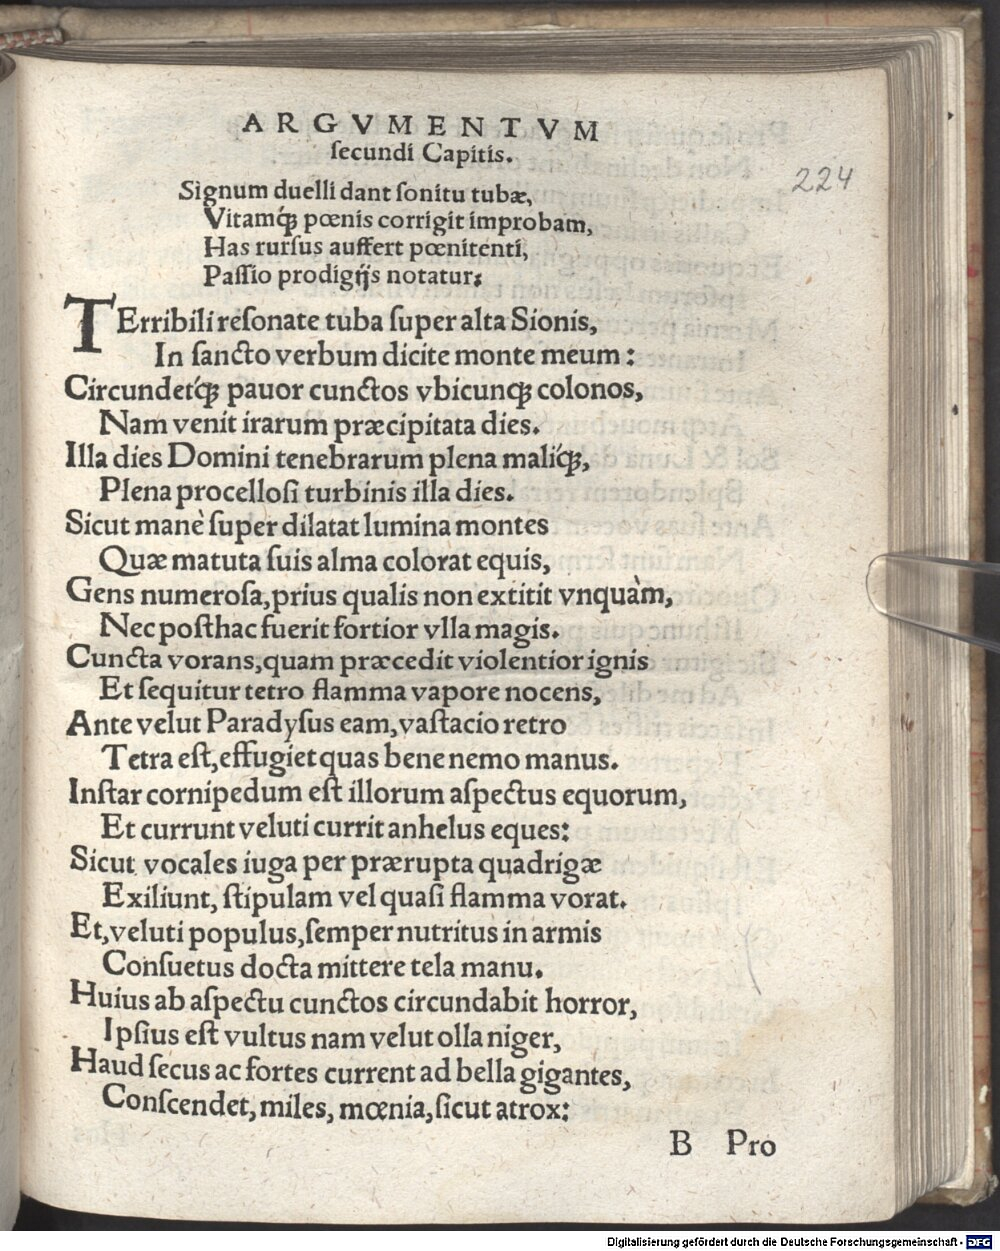 ARGVMENTVM
ſecundi Capitis.
224
Signum duelli dant ſonitu tubæ,
Vitamq́ꝫ pœnis corrigit improbam,
Has rurſus auffert pœnitenti,
Paſſio prodigijs notatur;
TErribili reſonate tuba ſuper alta Sionis,
In ſancto verbum dicite monte meum:
Circundetq́ꝫ pauor cunctos vbicunqꝫ colonos,
Nam venit irarum præcipitata dies.
Illa dies Domini tenebrarum plena maliq́ꝫ,
Plena procelloſi turbinis illa dies.
Sicut manè ſuper dilatat lumina montes
Quæ matuta ſuis alma colorat equis,
Gens numeroſa, prius qualis non extitit vnquàm,
Nec poſthac fuerit fortior vlla magis.
Cuncta vorans, quam præcedit violentior ignis
Et ſequitur tetro flamma vapore nocens,
Ante velut Paradyſus eam, vaſtacio retro
Tetra eſt, effugiet quas bene nemo manus.
Inſtar cornipedum eſt illorum aſpectus equorum,
Et currunt veluti currit anhelus eques:
Sicut vocales iuga per prærupta quadrigæ
Exiliunt, ſtipulam vel quaſi flamma vorat.
Et, veluti populus, ſemper nutritus in armis
Conſuetus docta mittere tela manu.
Huius ab aſpectu cunctos circundabit horror,
Ipſius eſt vultus nam velut olla niger,
Haud ſecus ac fortes current ad bella gigantes,
Conſcendet, miles, mœnia, ſicut atrox:
B Pro
Digitalisierung gefördert durch die Deutsche Forschungsgemeinschaft - DFG